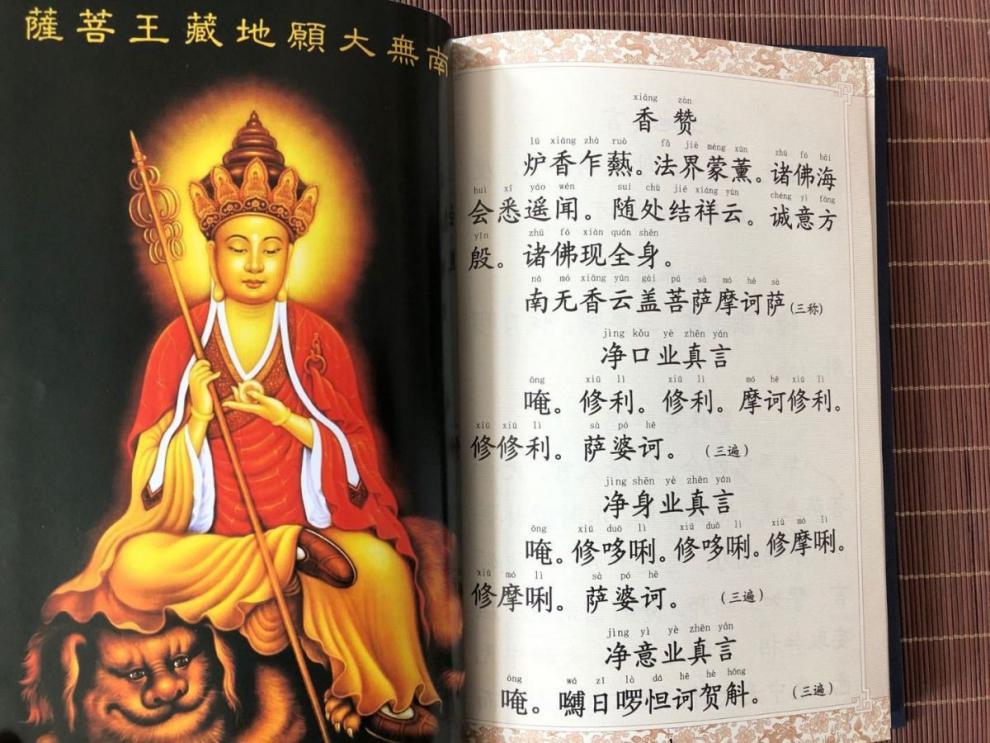 南無大願地藏王菩薩
xiāng zàn
香赞
lú xiāng zhà ruò fǎ jiè méng xūn zhū fó hǎi
炉香乍爇。法界蒙薰。诸佛海
huì xī yáo wén suí chù jié xiáng yún chéng yì fāng
会悉遥闻。随处结祥云。诚意方
yīn zhū fó xiàn quán shēn
殷。诸佛现全身。
ná mó xiāng yún gài pú sà mó hē sà
南无香云盖菩萨摩诃萨(三称)
jìng kǒu yè zhēn yán
净口业真言
ōng xiū lì xiū lì mó hē xiū lì
唵。修利。修利。摩诃修利。
xiū xiū lì sà pó hē
修修利。萨婆诃。(三遍)
jìng shēn yè zhēn yán
净身业真言
ōng xiū duō lì xiū duō lì xiū mó lì
唵。修哆唎。修哆唎。修摩唎。
xiū mó lì sà pó hē
修摩唎。萨婆诃。(三遍)
jìng yì yè zhēn yán
净意业真言
唵。嚩日啰怛诃贺斛。(三遍)